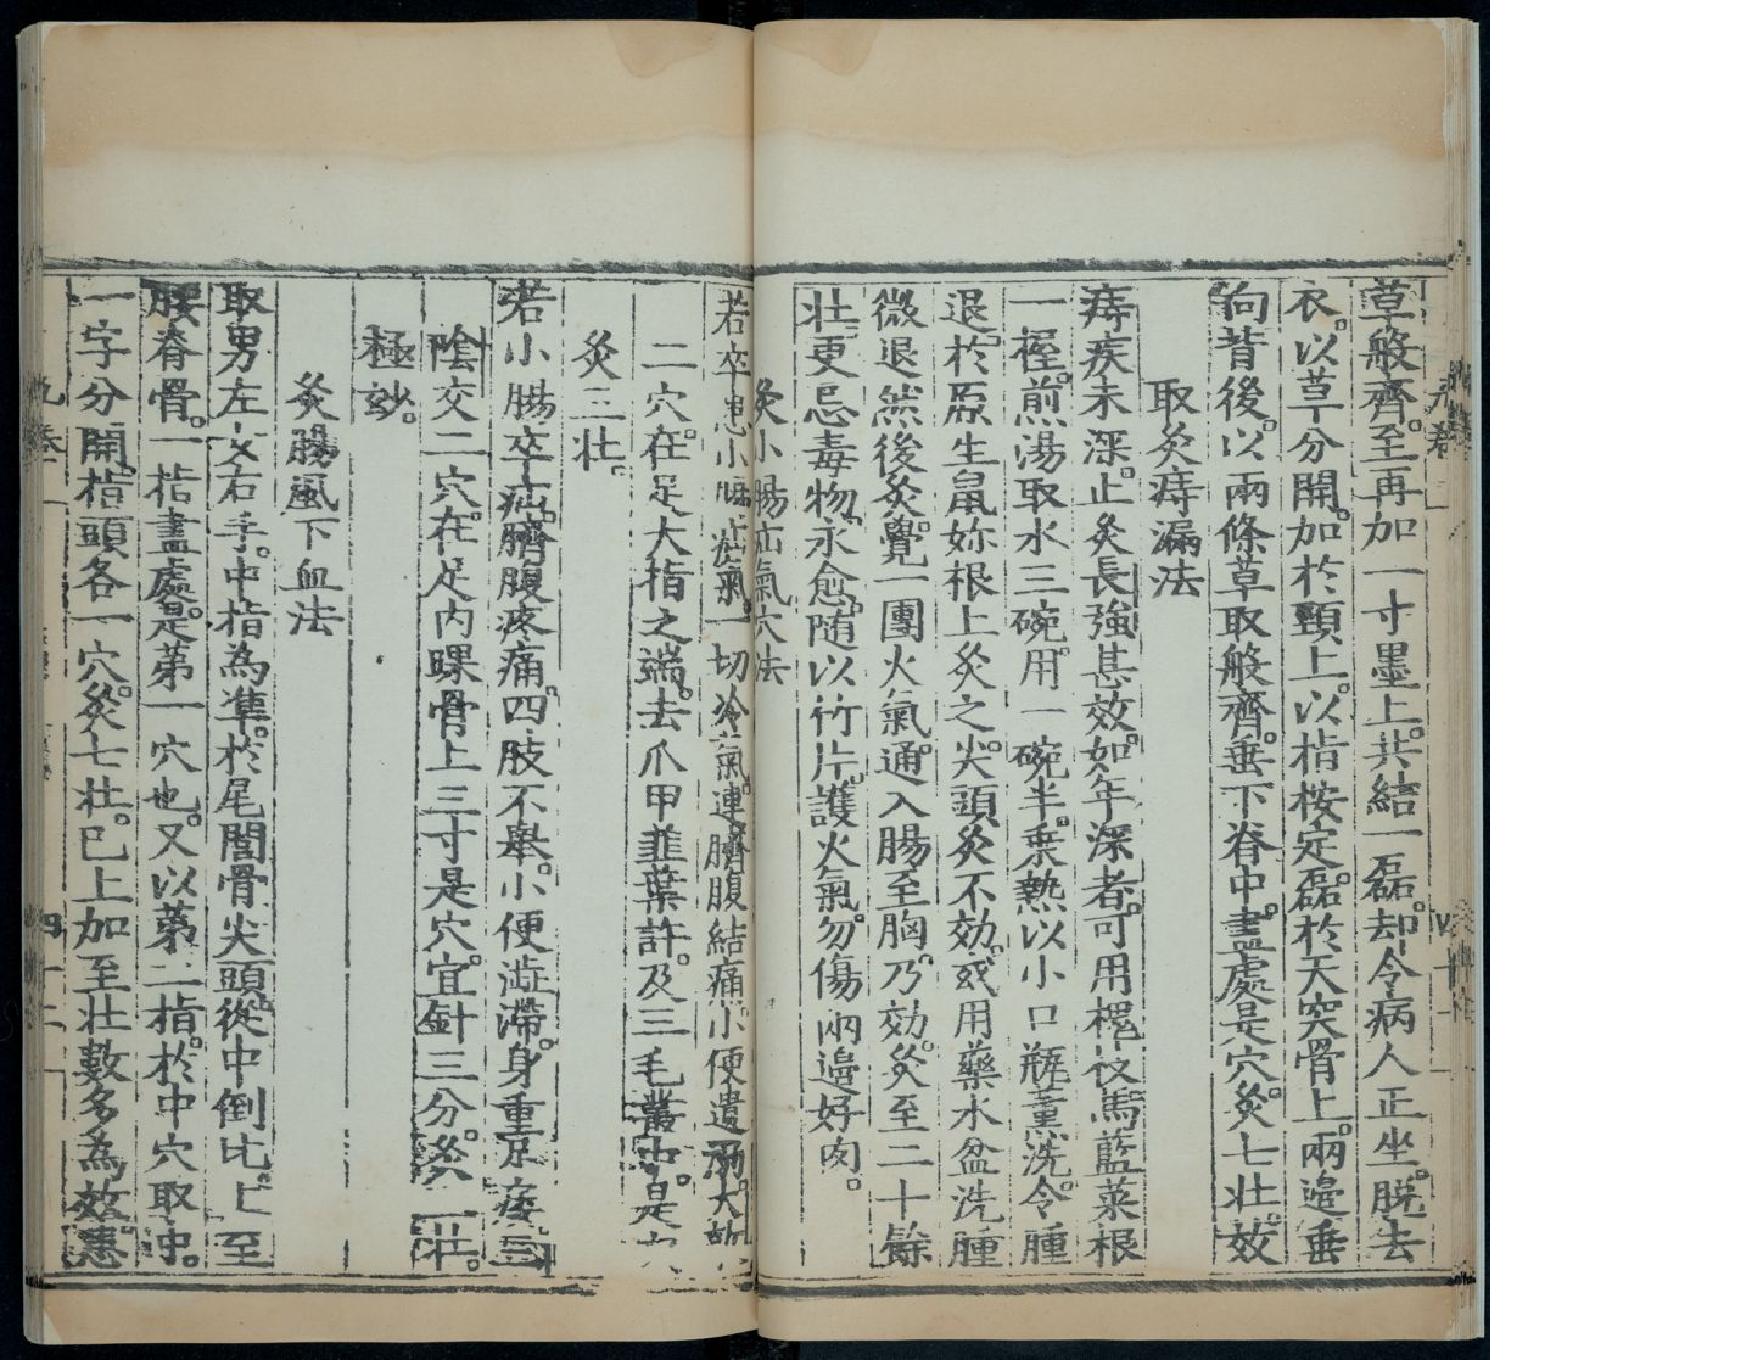 草般齊。至再加一寸墨上。共結一磊。却令病人正坐。脱去
衣。以草分開。加於頸上。以指按定。磊於天突骨上。兩邊垂
向背後。以兩條草取般齊。垂下脊中。盡處是穴。灸七壯。效
取灸痔漏法
痔疾未深。止灸長強甚效。如年深者。可用槐枝馬藍菜根
一握。煎湯取水三碗。用一碗半。乗熱以小口瓶薰洗。令腫
退。於原生鼠妳根上灸之。尖頭灸不効。或用藥水盆洗腫
微退然後灸。覺一團火氣。通入腸至胸。乃効。灸至二十餘
壯。更忌毒物。永愈。随以竹片。護火氣。勿傷兩邊好肉。
灸小腸疝氣穴法
若卒患小腸疝氣。一切冷氣。連臍腹結痛。小便遺溺。大
二穴。在足大指之端。去爪甲韭葉許。及三毛叢中。是
灸三壯。
若小腸卒疝。臍腹疼痛。四肢不舉。小便澁滯。身重足痿。三
陰交二穴。在足内踝骨上三寸是穴。宜針三分。灸三壯。
極妙。
灸腸風下血法
取男左女右手。中指為準。於尾閭骨尖頭。從中倒比。上至
腰脊骨。一指盡處。是第一穴也。又以第二指。於中穴取中。
一字分開。指頭各一穴。灸七壯。已上加至壯數多為效。患